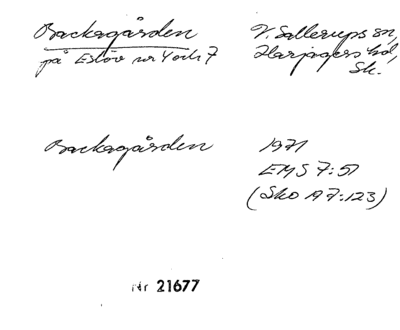 Backagården V. Sallerups sn,
på Eslöv nr 4 och 7 Harjagers hd,
Sk.
Backagården 1971
EMS 7:51
(Sko A 7:123)
Nr 21677